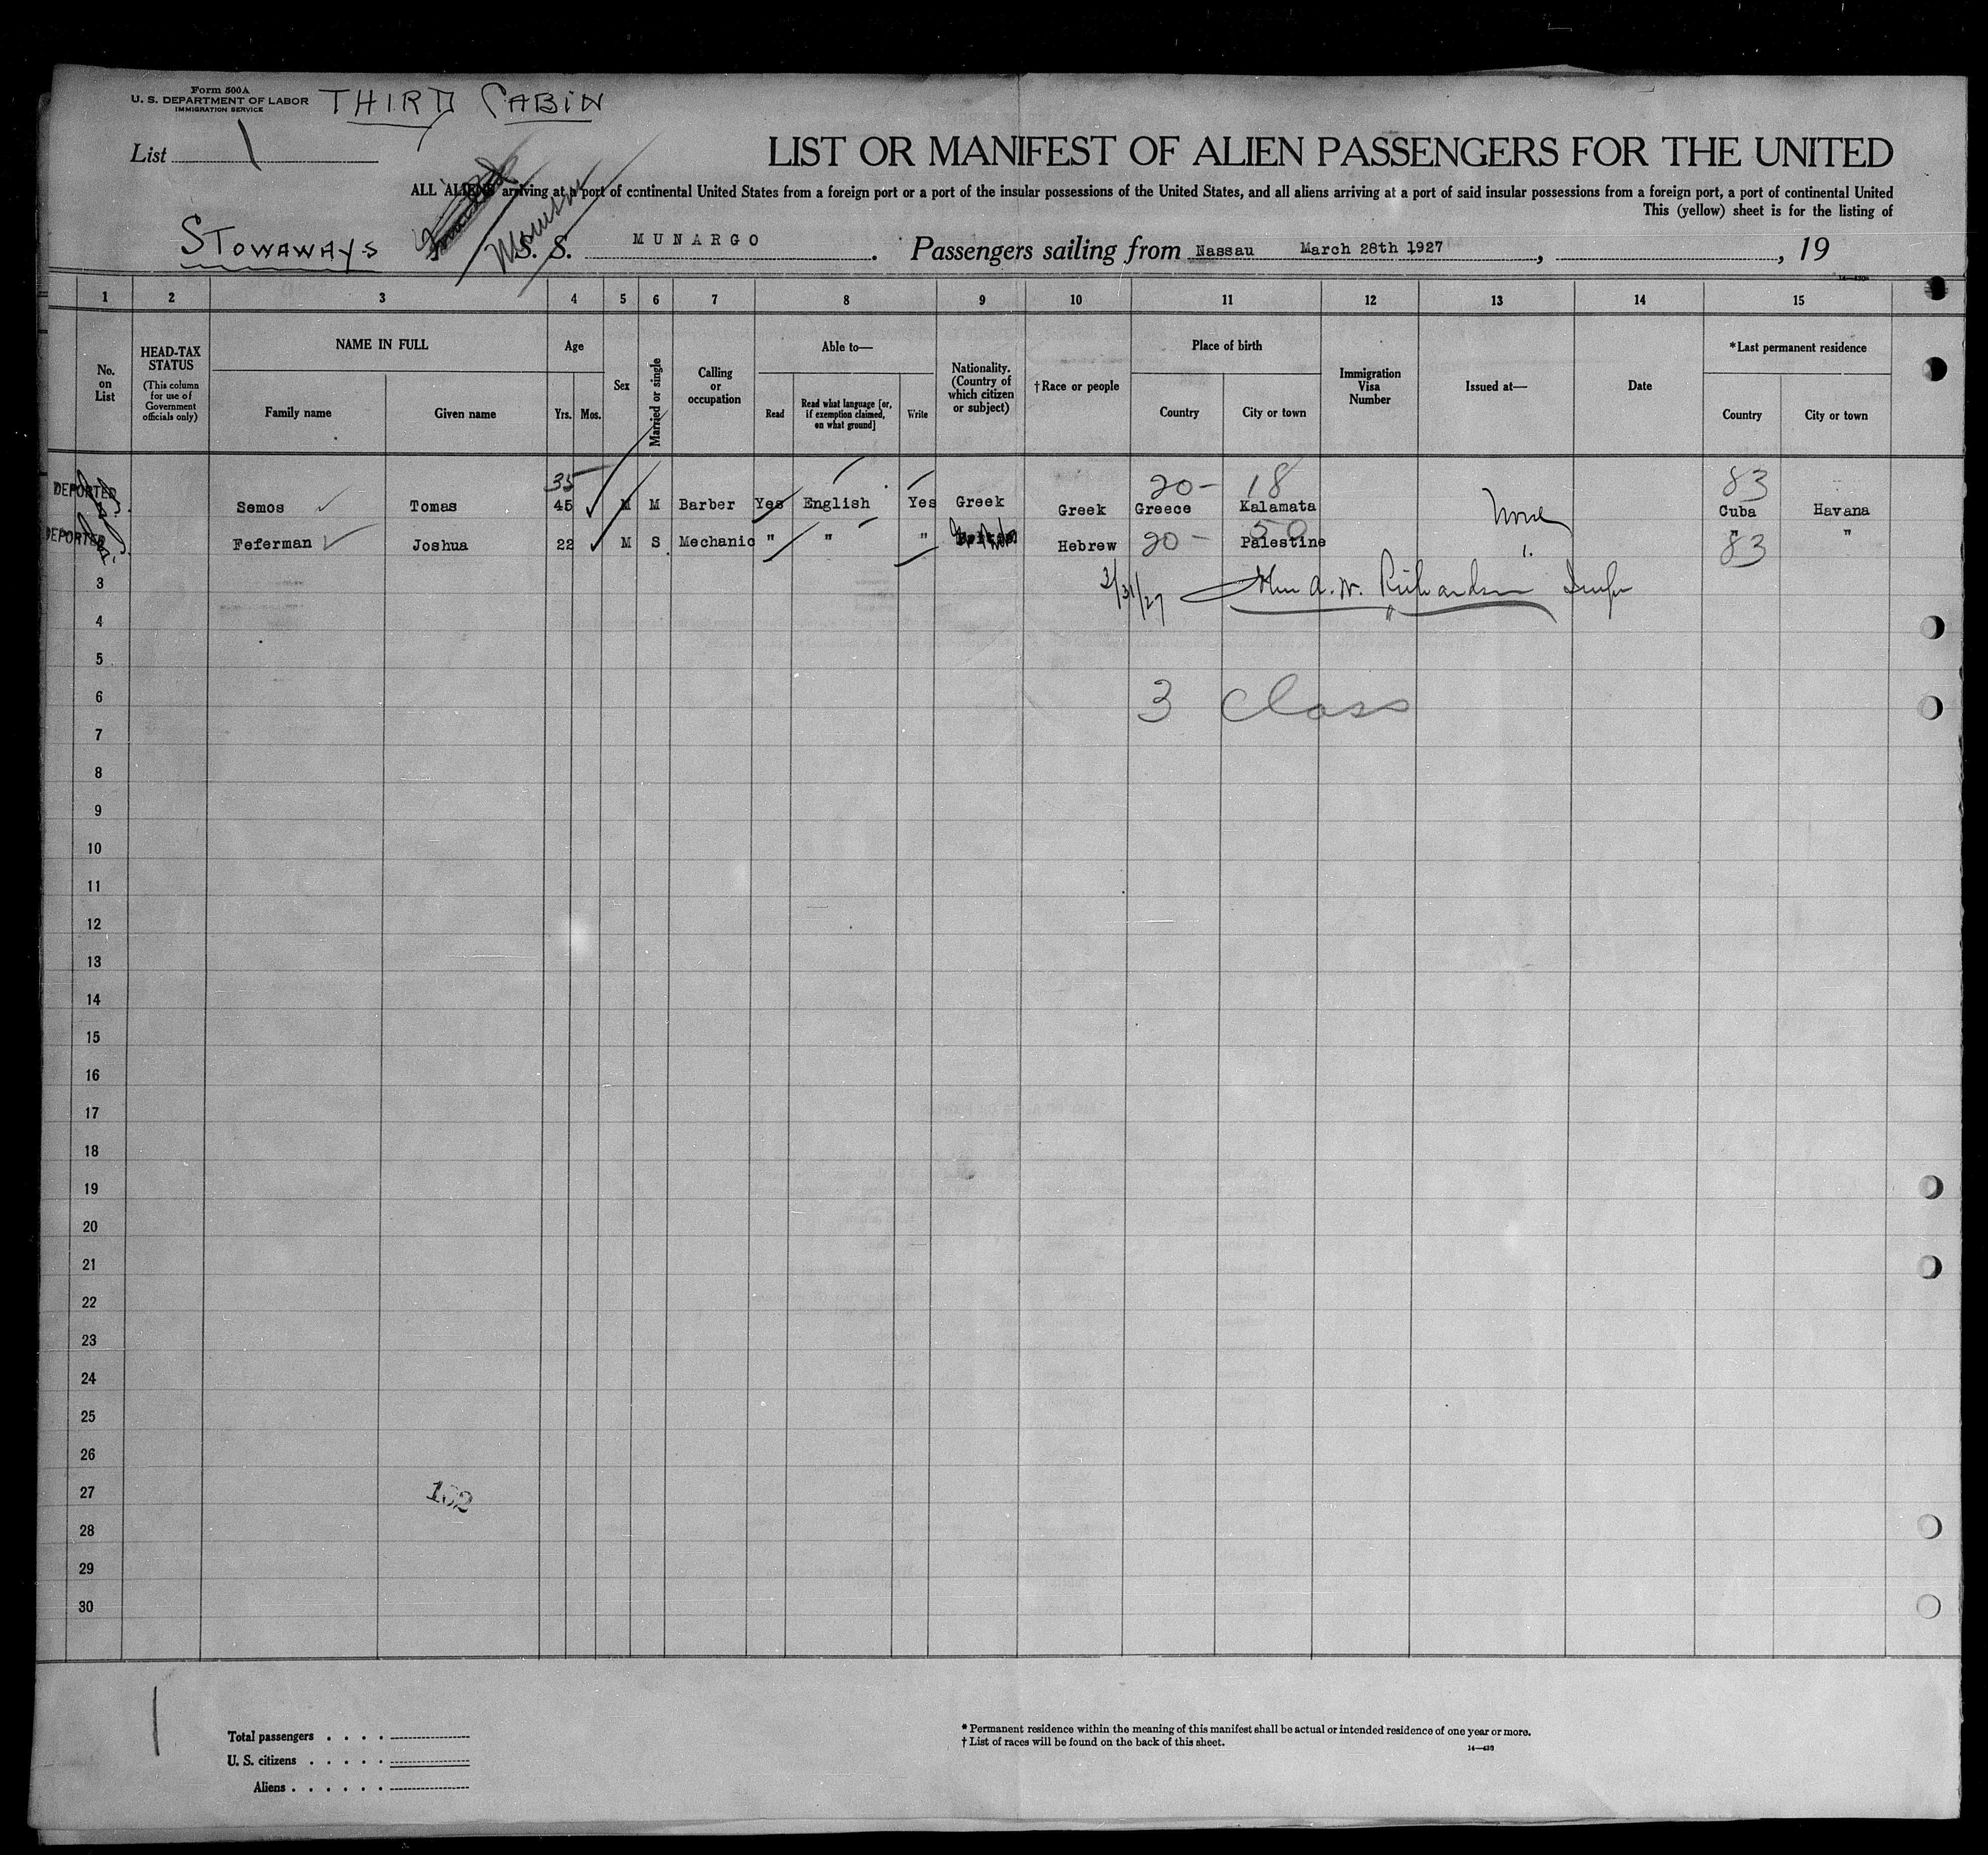 Form 500A
U. S. DEPARTMENT OF LABOR
IMMIGRATION SERVICE
THIRD CABIN
List 1
LIST OR MANIFEST OF ALIEN PASSENGERS FOR THE UNITED
ALL ALIENS arriving at a port of continental United States from a foreign port or a port of the insular possessions of the United States, and all aliens arriving at a port of said insular possessions from a foreign port, a port of continental United
This (yellow) sheet is for the listing of
STOWAWAYS
S. S. MUNARGO . Passengers sailing from Nassau March 28th 1927 , , 19
14—430
1 2 3 4 5 6 7 8 9 10 11 12 13 14 15
No. on List
HEAD-TAX STATUS
(This column for use of Government officials only)
NAME IN FULL
Family name Given name
Age
Yrs. Mos.
Sex
Married or single
Calling or occupation
Able to—
Read
Read what language [or, if exemption claimed, on what ground]
Write
Nationality. (Country of which citizen or subject)
†Race or people
Place of birth
Country City or town
Immigration Visa Number
Issued at—
Date
*Last permanent residence
Country City or town
35 20- 18 83
DEPORTED Semos Tomas 45 M M Barber Yes English Yes Greek Greek Greece Kalamata None Cuba Havana
DEPORTED Feferman Joshua 22 M S Mechanic " " " Hebrew 20- 50 Palestine " 83 "
3
3/31/27 A. W. Richardson
4
5
6
3 Class
7
8
9
10
11
12
13
14
15
16
17
18
19
20
21
22
23
24
25
26
27
132
28
29
30
1
Total passengers . . . .
U. S. citizens . . . . .
Aliens . . . . . .
* Permanent residence within the meaning of this manifest shall be actual or intended residence of one year or more.
† List of races will be found on the back of this sheet.
14—430